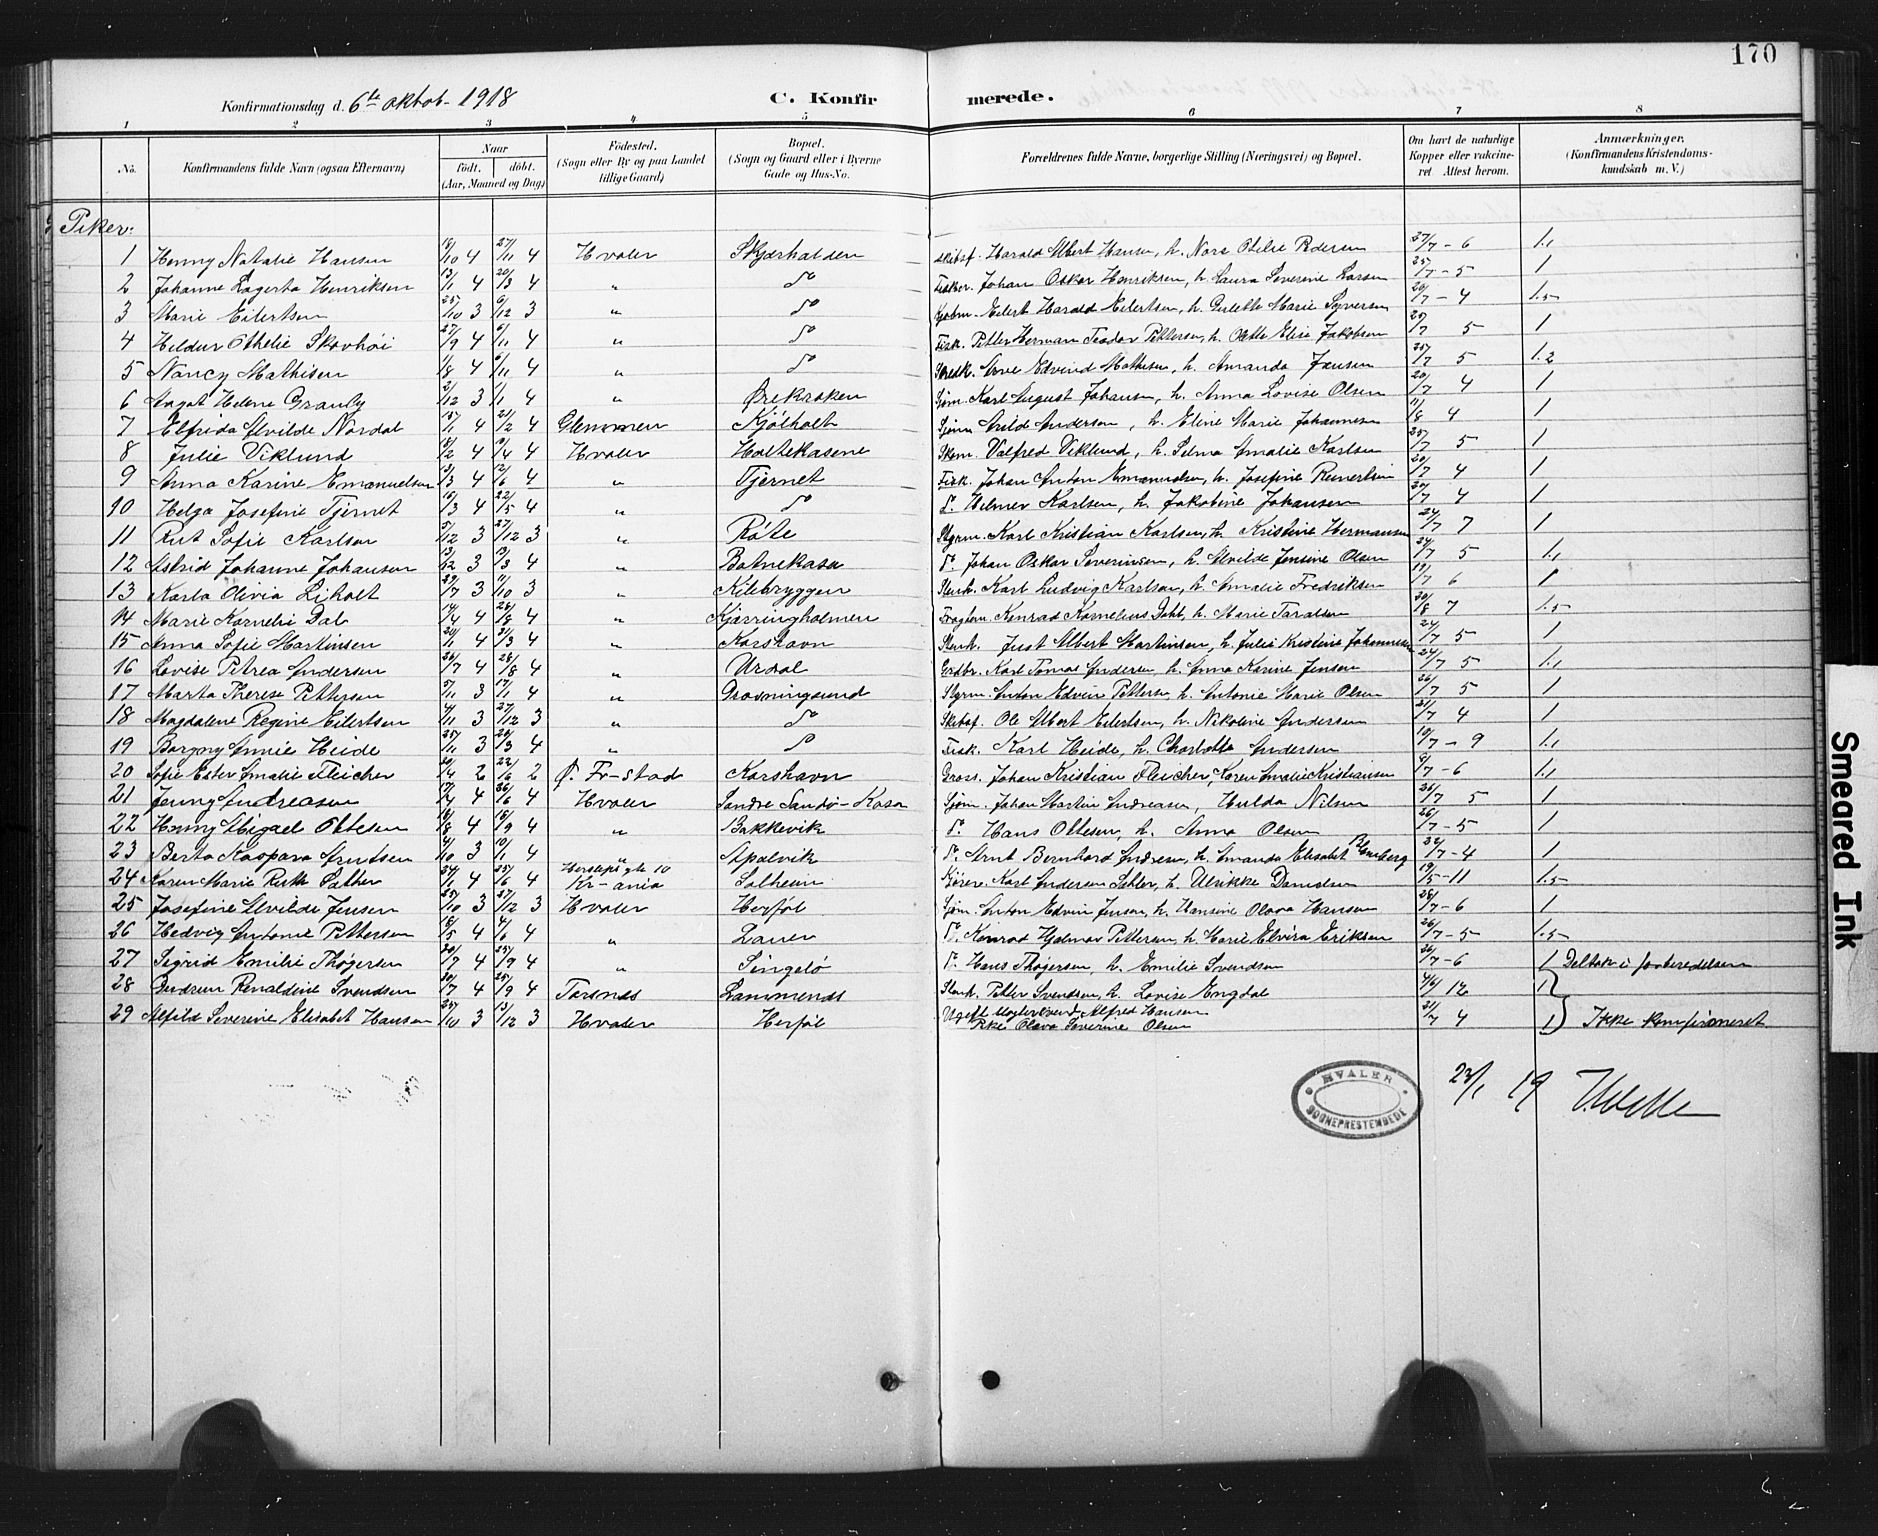 170
Konfirmationsdag d. 6te oktob. 1918 C. Konfirmerede.
1 2 3 4 5 6 7 8
No. Konfirmandens fulde Navn (ogsaa Efternavn) Naar født. døbt. (Aar, Maaned og Dag) Fødested. (Sogn eller By og paa Landet tillige Gaard) Bopæl. (Sogn og Gaard eller i Byerne Gade og Hus-No. Forældrenes fulde Navne, borgerlige Stilling (Næringsvei) og Bopæl. Om havt de naturlige Kopper eller vakcineret Attest herom. Anmærkninger. (Konfirmandens Kristendomskundskab m. V.)
Piker:
1 Henny Natalie Hansen 18/10 4 27/11 4 Hvaler Skjærhalden Skibsf. Harald Albert Hansen, h. Nora Otilie Pedersen 27/7 - 6 1.1
2 Johanne Lagerta Henriksen 13/1 4 20/3 4 " do Fisker. Johan Oskar Henriksen, h. Laura Severine Larsen 25/7 - 5 1
3 Marie Eilertsen 25/10 3 6/12 3 " do Eilert Harald Eilertsen, h. Marie Syversen 20/7 - 4 1.5
4 Hildur Othelie Skovhøi 27/9 4 6/11 4 " do Fisk. Petter Herman Teodor Pettersen, h. Elise Jakobsen 25/7 5 1
5 Nancy Mathisen 1/8 4 6/11 4 " do Arve Edvind Mathisen, h. Amanda Jansen 25/7 5 1.2
6 Aagot Helene Granly 2/12 3 1/1 4 " Ørekroken Sjøm. Karl August Johansen, h. Anna Lovise Olsen 20/7 4 1
7 Elfrida Alvilde Nordal 15/1 4 21/2 4 Glemmen Kjølholt Sjøm Arild Andersen, h. Eline Marie Johannesen 11/8 4 1
8 Julie Viklund 18/2 4 9/4 4 Hvaler Holtekasene Skom. Valfred Viklund, h. Selma Amalie Karlsen 25/7 5 1
9 Anna Karine Emanuelsen 13/3 4 12/6 4 " Tjernet Fisk. Johan Anton Emanuelsen, h. Josefine Reinertsen 20/7 4 1
10 Helga Josefine Tjernet 16/3 4 22/5 4 " do do Hilmer Karlsen, h. Jakobine Johansen 20/7 4 1
11 Rut Sofie Karlsen 5/12 3 27/12 3 " Røte Styrm. Karl Kristian Karlsen, h. Kristine Hermansen 24/7 7 1
12 Astrid Johanne Johansen 13/12 3 13/3 4 " Botnekasa do Johan Oskar Severinsen, h. Alvilde Jensine Olsen 24/7 5 1.1
13 Karla Olivia Liholt 29/7 3 11/10 3 " Kilebryggen Stenh. Karl Ludvig Karlsen, h. Amalie Fredriksen 19/7 6 1
14 Marie Kornelie Dal 14/4 4 28/8 4 " Kjærringholmen Konrad Kornelius Dahl, h. Marie Taraldsen 30/8 7 1.5
15 Anna Sofie Martinsen 20/1 4 21/3 4 " Korshavn Stenh. Just Albert Martinsen, h. Julia Kristine Johannesen 24/7 5 1
16 Lovise Petrea Andersen 26/7 4 28/8 4 " Urdal Grdbr. Karl Tomas Andersen, h. Anna Karine Jensen 24/7 5 1.1
17 Marta Therese Pettersen 5/11 3 17/1 4 " Gravningsund Styrm. Anton Edvin Pettersen, h. Antonie Marie Olsen 26/7 5 1
18 Magdalene Regine Eilertsen 4/11 3 27/12 3 " do Skibsf. Ole Albert Eilertsen, h. Nikoline Andersen 21/7 4 1
19 Borgny Annie Heide 25/11 3 20/3 4 " do Fisk. Karl Heide, h. Charlotte Andersen 10/7 - 9 1.1
20 Sofie Ester Amalie Fleicher 20/4 2 22/6 2 Ø. Fr-stad Korshavn Gross. Johan Kristian Fleicher, Karen Amalie Kristiansen 9/7 - 6 1.1
21 Jenny Andreasen 17/4 4 26/6 4 Hvaler Søndre Sandø - Kasa Sjøm. Johan Martin Andreasen, Hulda Nilsen 26/7 5 1
22 Henny Abigael Ottesen 16/8 4 18/9 4 " Bakkevik do Hans Ottesen, h. Anna Olsen 26/7 - 5 1
23 Berta Kaspara Arntsen 4/10 3 10/1 4 " Apalvik do Arnt Bernhard Andresen, h. Amanda Elisabet Blomberg 22/7 - 4 1
24 Karen Marie Ruth Sæther 24/1 4 25/6 4 Kr-ania Solheim Karl Andersen, h. Ulrikke Danielsen 19/5 - 11 1.5
25 Josefine Alvilde Jensen 25/10 3 27/12 3 Hvaler Herføl Sjøm. Anton Edvin Jensen, h. Hansine Olava Hansen 28/7 - 6 1
26 Hedvig Antonie Pettersen 18/5 4 4/6 4 " Lauer do Konrad Hjalmar Pettersen, h. Marie Elvira Eriksen 26/7 - 5 1.5
27 Sigrid Emilie Thøgersen 20/7 4 25/9 4 " Singelø do Hans Thøgersen, h. Emilie Svendsen 26/7 - 6 1 Deltok i forberedelsen
28 Gudrun Renaldine Svendsen 30/7 4 25/9 4 Torsnes Lammenes Stenh. Petter Svendsen, h. Lovise Engdal 4/6 12 1
29 Alfild Severine Elisabet Hansen 25/10 3 13/12 3 Hvaler Herføl Ugift Alfred Hansen Pike Olava Severine Olsen 21/7 4 1 Ikke konfirmeret
HVALER SOGNEPRESTEMBEDE
23/1 19
Smeared Ink